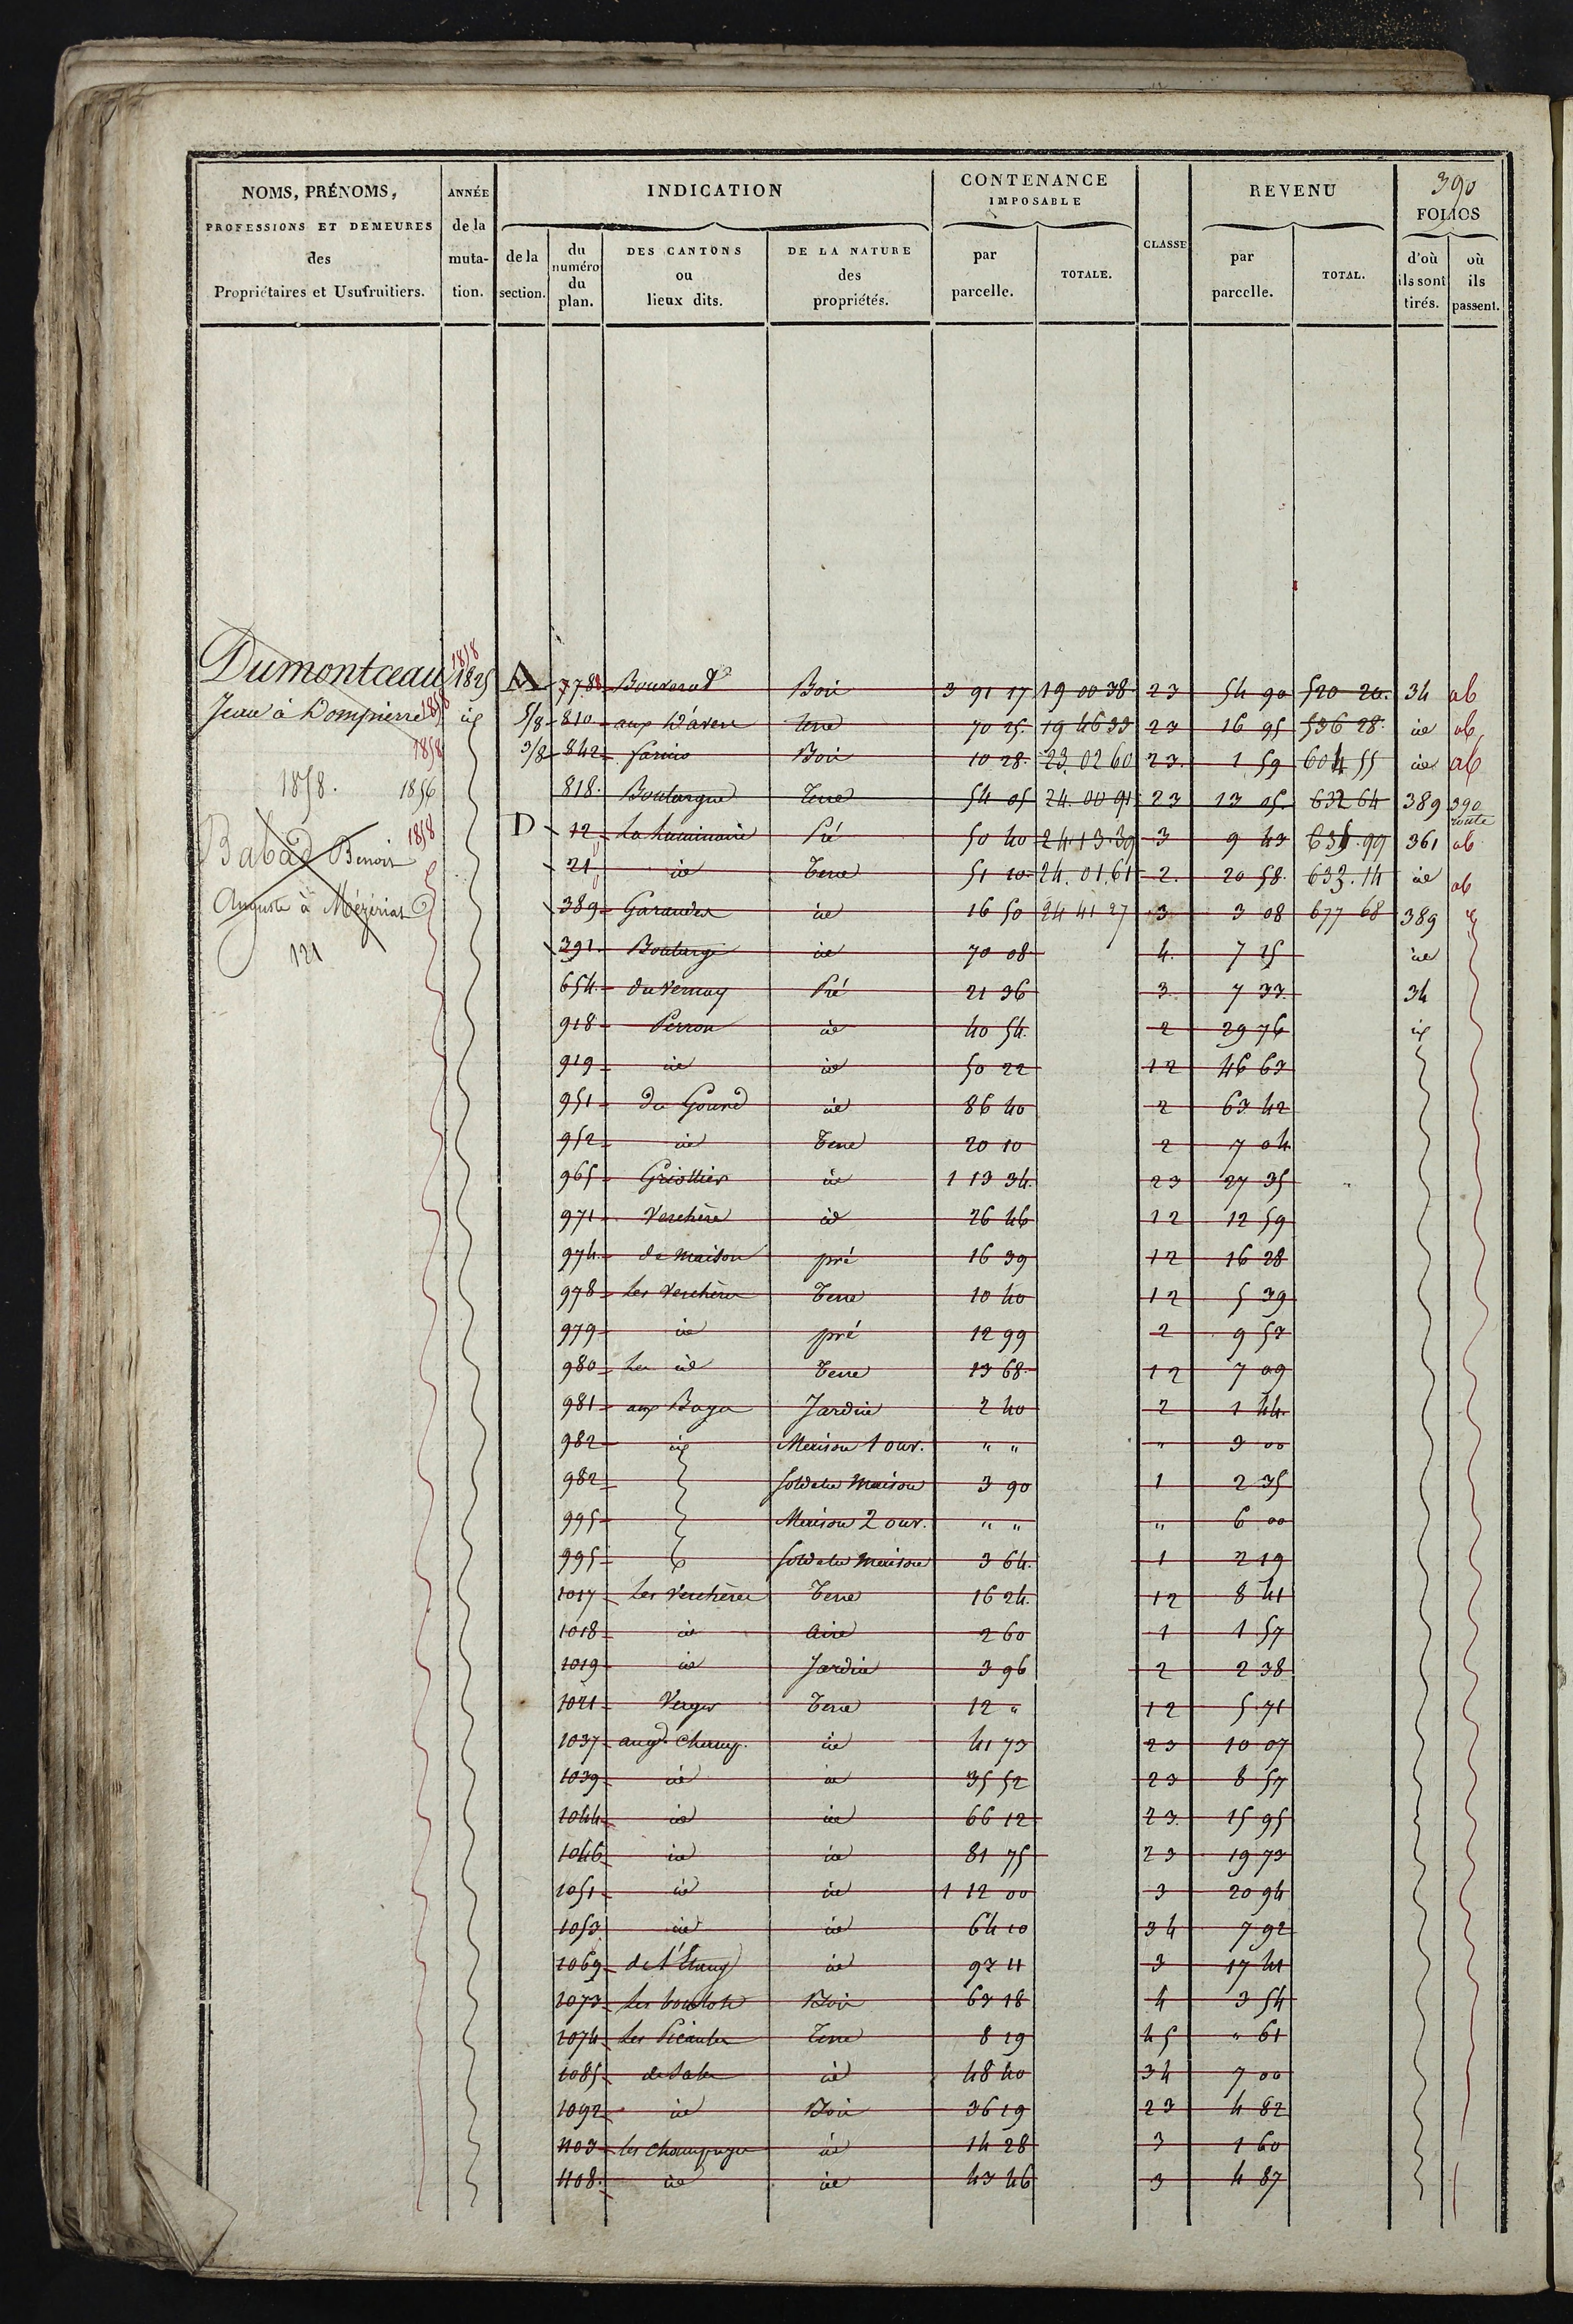 390
NOMS, PRÉNOMS, PROFESSIONS ET DEMEURES des Propriétaires et Usufruitiers.
ANNÉE de la mutation.
INDICATION
de la section.
du numéro du plan.
DES CANTONS ou lieux dits.
DE LA NATURE des propriétés.
CONTENANCE IMPOSABLE
par parcelle.
TOTALE.
CLASSE
REVENU
par parcelle.
TOTAL.
FOLIOS
d'où ils sont tirés.
où ils passent.
1858
Dumontceau 1825 A 778 Bois 3 91 17 19 00 38 23 54 90 520 20 34 ab
Jean à Dompierre 1858 id 5/8 810 Terre 70 25 19 46 33 23 16 95 536 28 id ab
1858 3/8 842 Bois 10 28 23 02 60 23 1 59 604 55 id ab
1858. 1856 818 Terre 54 05 24 00 91 23 13 05 632 64 389 390 route
1858 D 12 Pré 50 40 24 13 39 3 9 43 99 361 ab
Babad Benoit 21 id Terre 51 10 24.01.61 2 20 58 633.14 id ab
Auguste à Mézériat 389 id 16 50 24 41 27 3 3 08 677 68 389
121 391 id 70 08 4 7 15 id
654 du Vernay Pré 21 36 3 7 33 34
918 Perron id 40 54 2 29 76 id
919 id id 50 22 12 46 63
951 id 86 40 2 63 42
952 id Terre 20 10 2 7 04
965 Griottier id 1 13 34 23 27 35
971 Verchère id 26 46 12 12 59
974 de Maison pré 16 39 12 16 28
978 Les Verchères Terre 10 40 12 5 39
979 id pré 12 99 2 9 57
980 Les id Terre 13 68 12 7 09
981 aux Jardin 2 40 2 1 44
982 id Maison 1 ouv. " " " 3 00
982 Sol de la Maison 3 90 1 2 35
995 Maison 2 ouv. " " " 6 00
995 Sol de la Maison 3 64 1 2 19
1017 Les Verchères Terre 16 24 12 8 41
1018 id Aire 2 60 1 1 57
1019 id Jardin 3 96 2 2 38
1021 Verger Terre 12 " 12 5 71
1037 au gd. Champ. id 41 73 23 10 07
1039 id id 35 52 23 8 57
1044 id id 66 12 23 15 95
1046 id id 81 75 23 19 73
1051 id id 1 12 00 3 20 94
1053 id id 64 10 34 7 92
1069 de l'Étang id 3 17 41
1073 Bois 63 18 4 3 54
1074 Terre 8 19 45 " 61
1085 id 48 40 34 7 00
1092 id Bois 36 19 23 4 82
1103 id 14 28 3 1 60
1108 id id 43 46 3 4 87